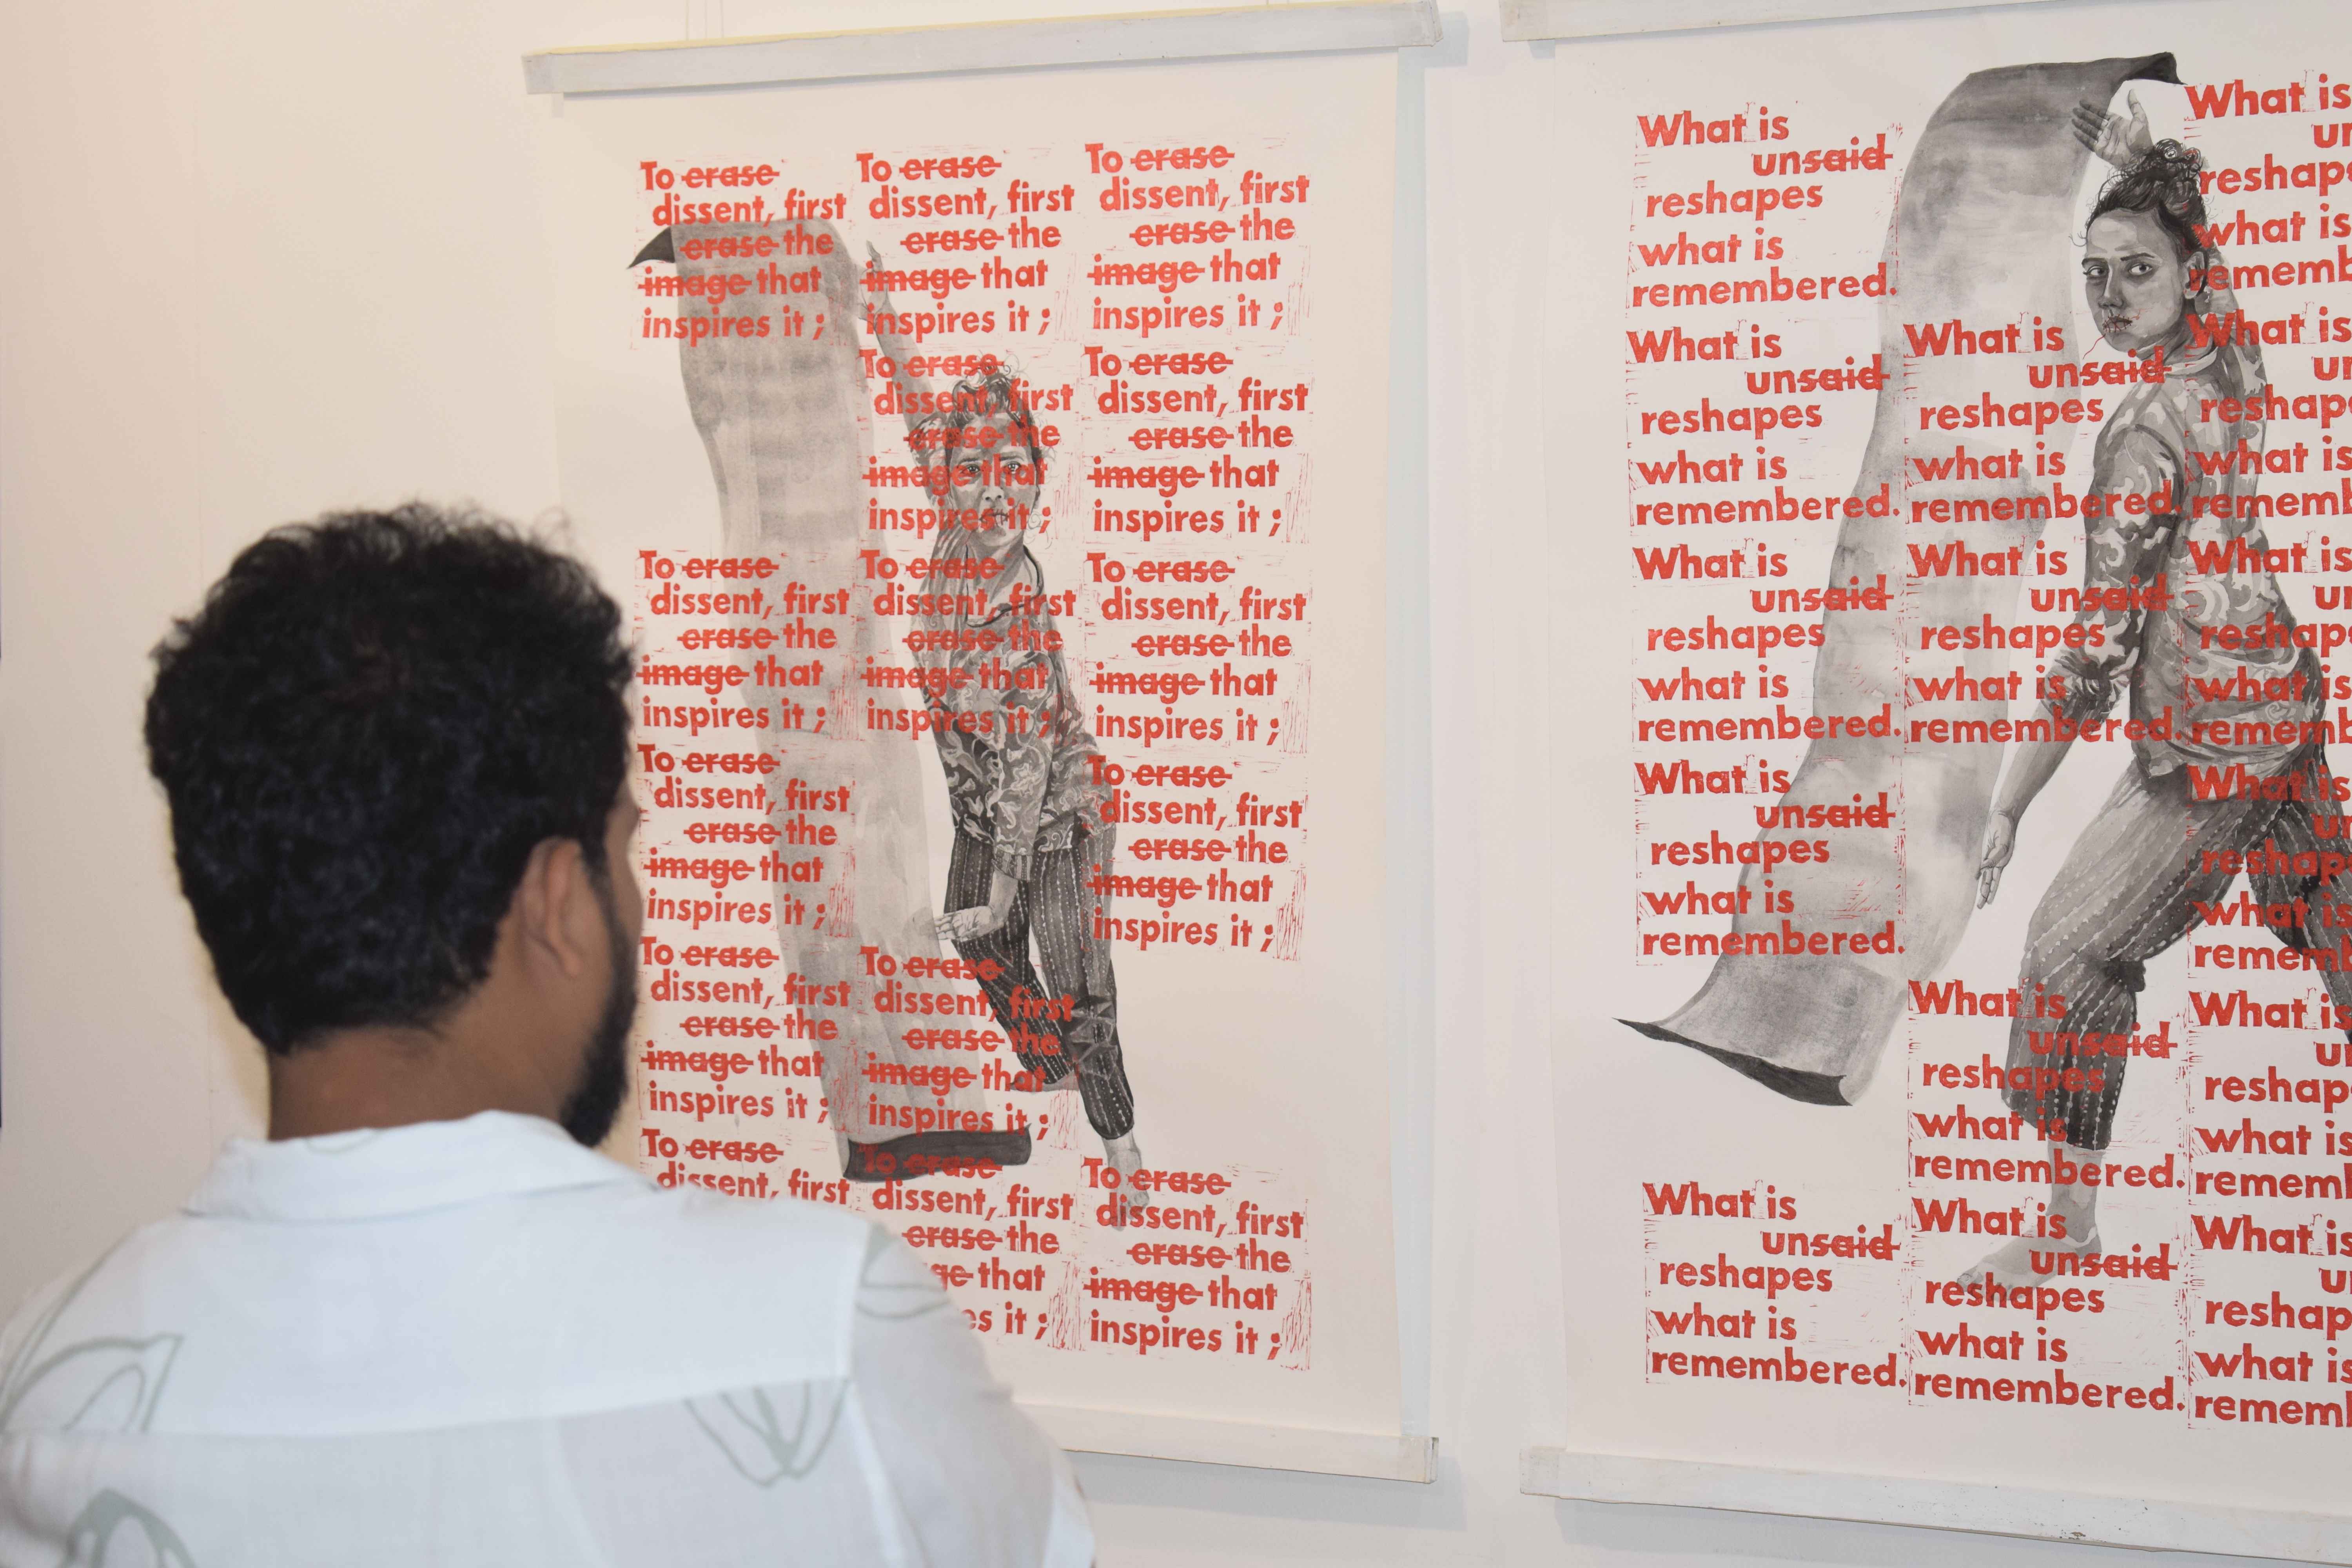 To erase
dissent, first
erase the
image that
inspires it ;
To erase
dissent, first
erase the
image that
inspires it ;
To erase
dissent, first
erase the
image that
inspires it ;
To erase
dissent, first
erase the
image that
inspires it ;
To erase
dissent, first
To erase
dissent, first
erase the
image that
inspires it ;
To erase
dissent, first
erase the
image that
inspires it ;
To erase
dissent, first
erase the
image that
inspires it ;
To erase
dissent, first
erase the
image that
inspires it ;
To erase
dissent, first
erase the
that
it ;
To erase
dissent, first
erase the
image that
inspires it ;
To erase
dissent, first
erase the
image that
inspires it ;
To erase
dissent, first
erase the
image that
inspires it ;
To erase
dissent, first
erase the
image that
inspires it ;
To erase
dissent, first
erase the
image that
inspires it ;
What is
unsaid
reshapes
what is
remembered.
What is
unsaid
reshapes
what is
remembered.
What is
unsaid
reshapes
what is
remembered.
What is
unsaid
reshapes
what is
remembered.
What is
unsaid
reshapes
what is
remembered.
What is
unsaid
reshapes
what is
remembered.
What is
unsaid
reshapes
what is
remembered.
What is
unsaid
reshapes
what is
remembered.
What is
unsaid
reshapes
what is
remembered.
What is
un
reshap
what is
rememb
What is
un
reshap
what is
rememb
What is
un
reshap
what is
rememb
What is
un
reshap
what is
rememb
What is
un
reshap
what is
rememb
What is
un
reshap
what is
rememb